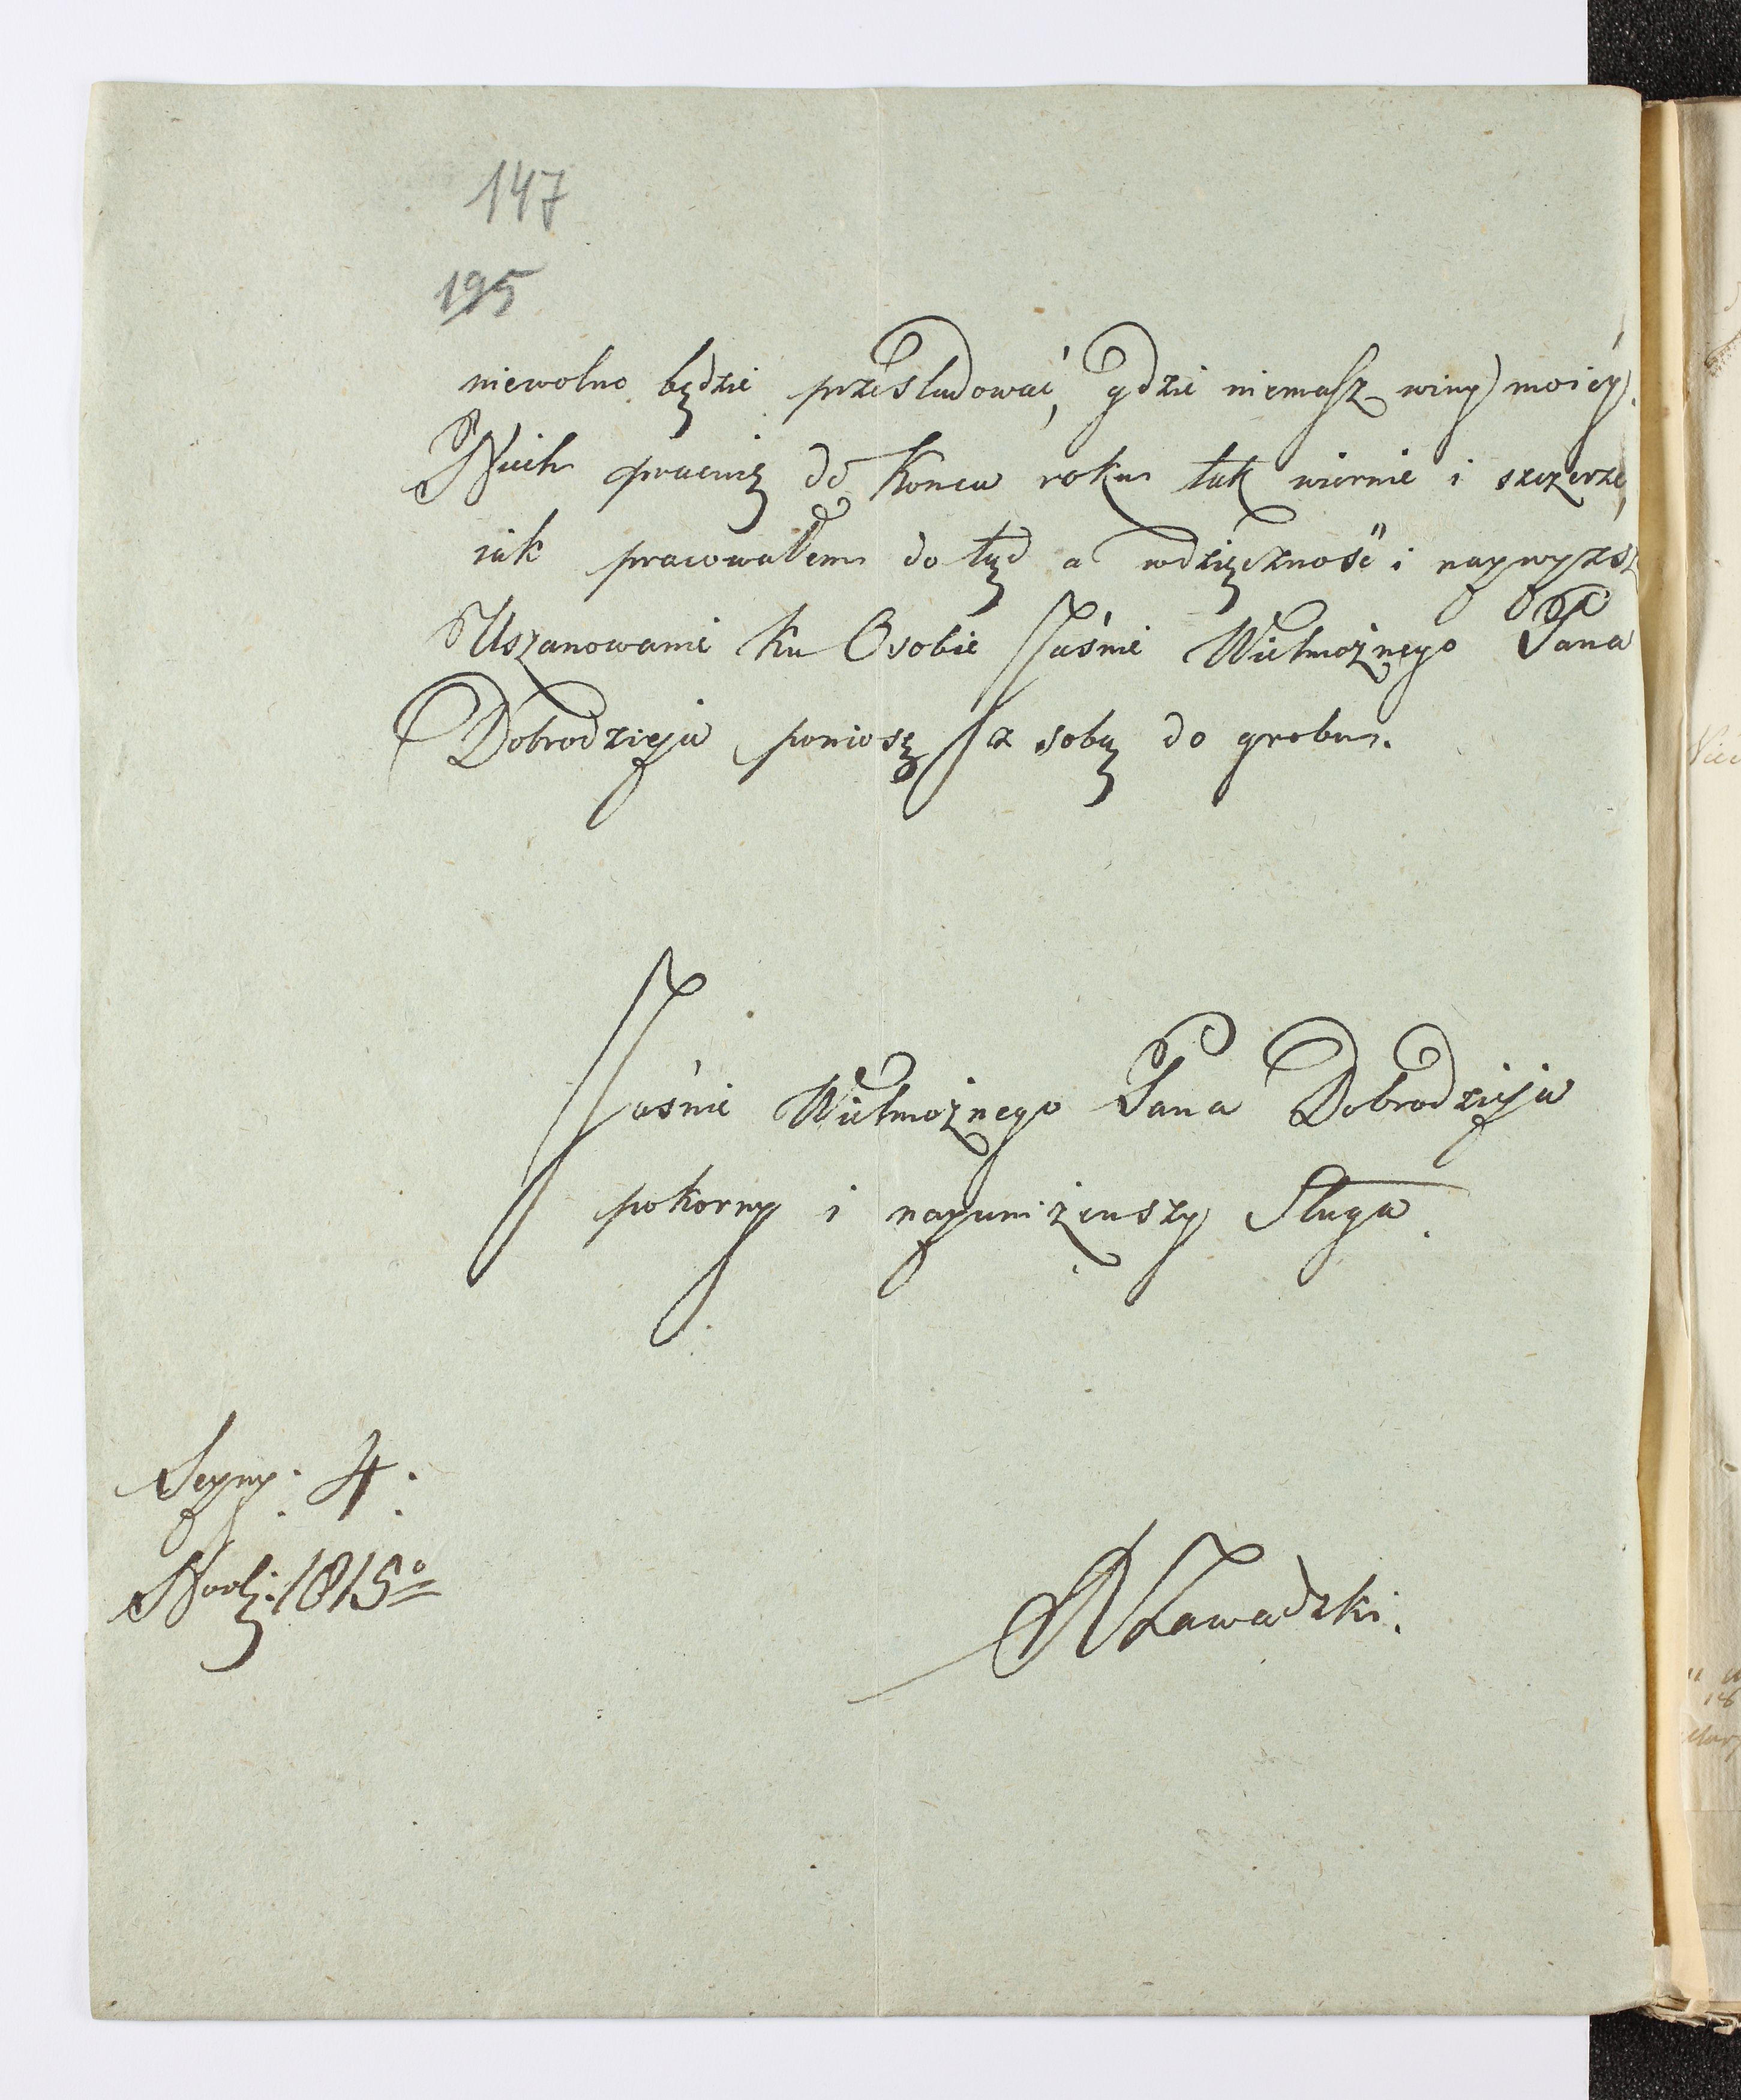 147
195
niewolno będzie prześladować, gdzie niemasz winy moiéy.
Niech pracuię do Konca roku tak wiernie i szczerze,
iak pracowałem do tąd a wdzięczność i naywyższ
Uszanowanie ku Osobie Jaśnie Wielmożnego Pana
Dobrodzieja poniosę z sobą do grobu.
Jaśnie Wielmożnego Pana Dobrodzieja
pokorny i nayuniżeńszy Sługa.
Seyny. 4.
1815º
Zawadzki.